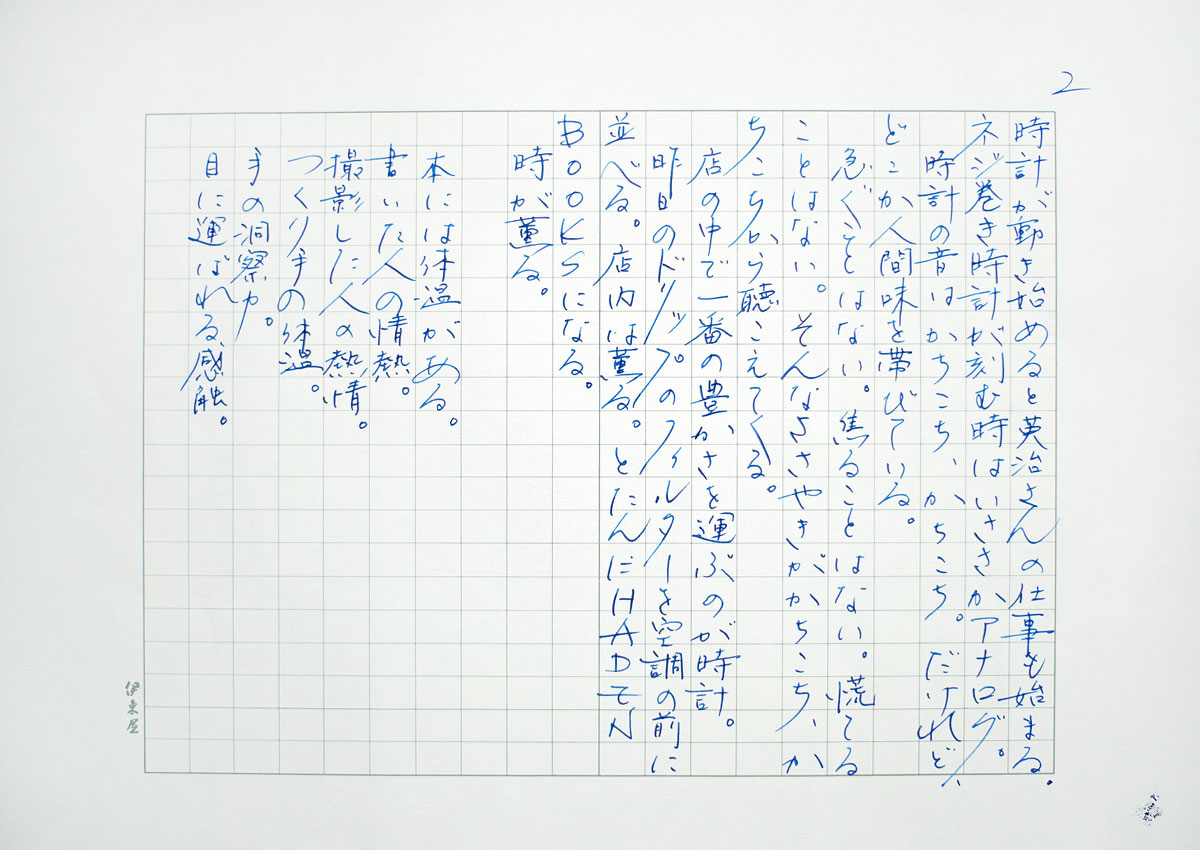 2
時計が動き始めると英治さんの仕事も始まる。
ネジ巻き時計が刻む時はいささかアナログ。
時計の音はかちこち、かちこち。だけれど、
どこか人間味を帯びている。
急ぐことはない。焦ることはない。慌てる
ことはない。そんなささやきがかちこち、か
ちこちから聴こえてくる。
店の中で一番の豊かさを運ぶのが時計。
昨日のドリップのフィルターを空調の前に
並べる。店内は薫る。とたんにHADEN
BOOKSになる。
時が薫る。
本には体温がある。
書いた人の情熱。
撮影した人の熱情。
つくり手の体温。
手の洞察力。
目に運ばれる、感触。
伊東屋